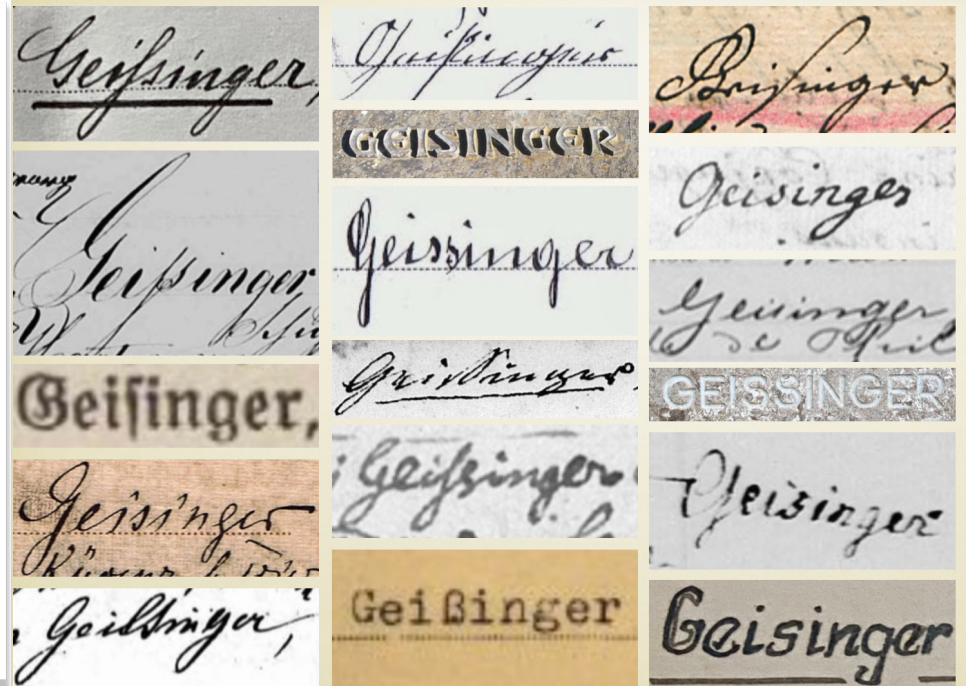 Geißsinger,
Geißinger
Geiſinger,
Geisinger
Geissinger,
Geissinger
GEISINGER
Geissinger
Geissinger
Geißinger
Geißinger
Geisinger
Geisinger
Geissinger
GEISSINGER
Geisinger
Geisinger